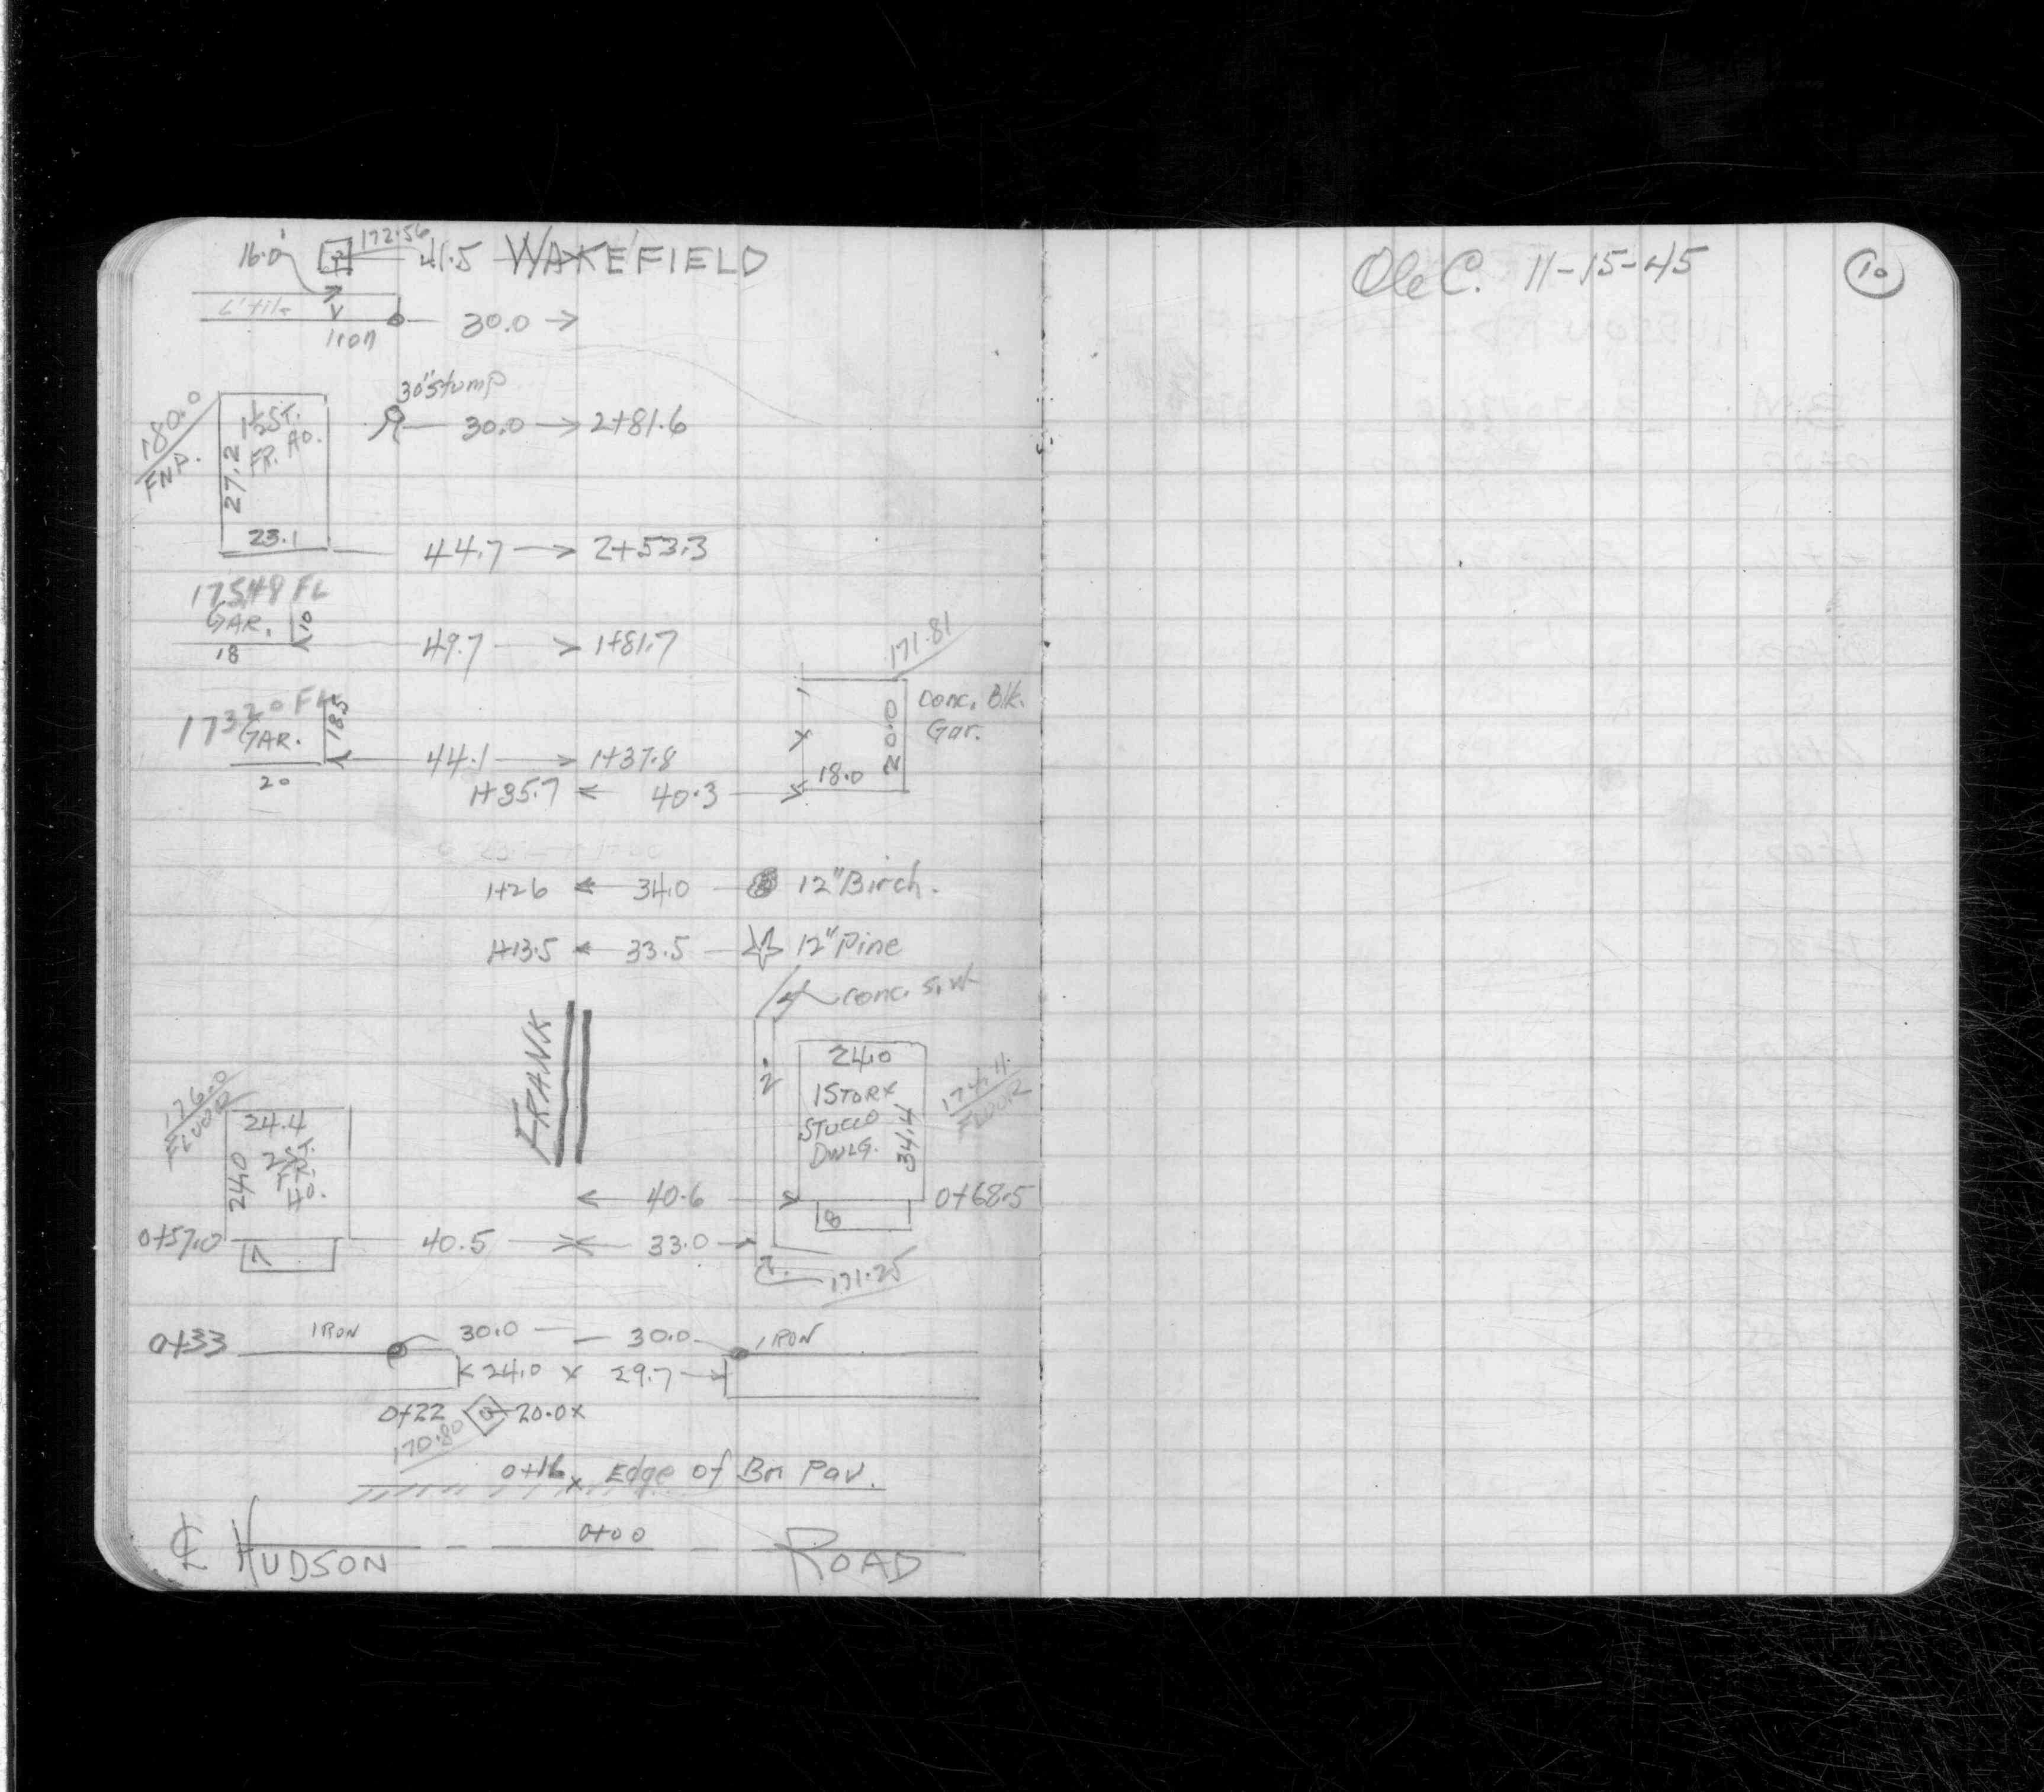 16.0' 172.56 41.5 WAKEFIELD
30.0
Iron
30" Stump
30.0 2+81.6
180.0
FNP.
1½ ST.
FR. HO.
27.2
23.1
44.7 2+53.3
175.48 FL
GAR. 10
18
49.7 1+81.7
171.81
Conc. Blk.
Gar.
20.0
18.0
173.20 FL
GAR. 18.5
20
44.1 1+37.8
1+35.7 40.3
1+26 34.0 12" Birch.
1+13.5 33.5 12" Pine
4 conc. s.w.
FRANK
2'
24.0
1 STORY
STUCCO
DWLG.
34.4
174.11
FLOOR
176.0
FLOOR
24.4
24.0
2 ST.
FR.
HO.
40.6 0+68.5
8
0+57.0 40.5 33.0
7
171.25
0+33 IRON 30.0 30.0 IRON
24.0 x 29.7
0+22 20.0x
170.80
0+16 x Edge of Bn Pav.
0+00
℄ HUDSON ROAD
Ole C. 11-15-45 10